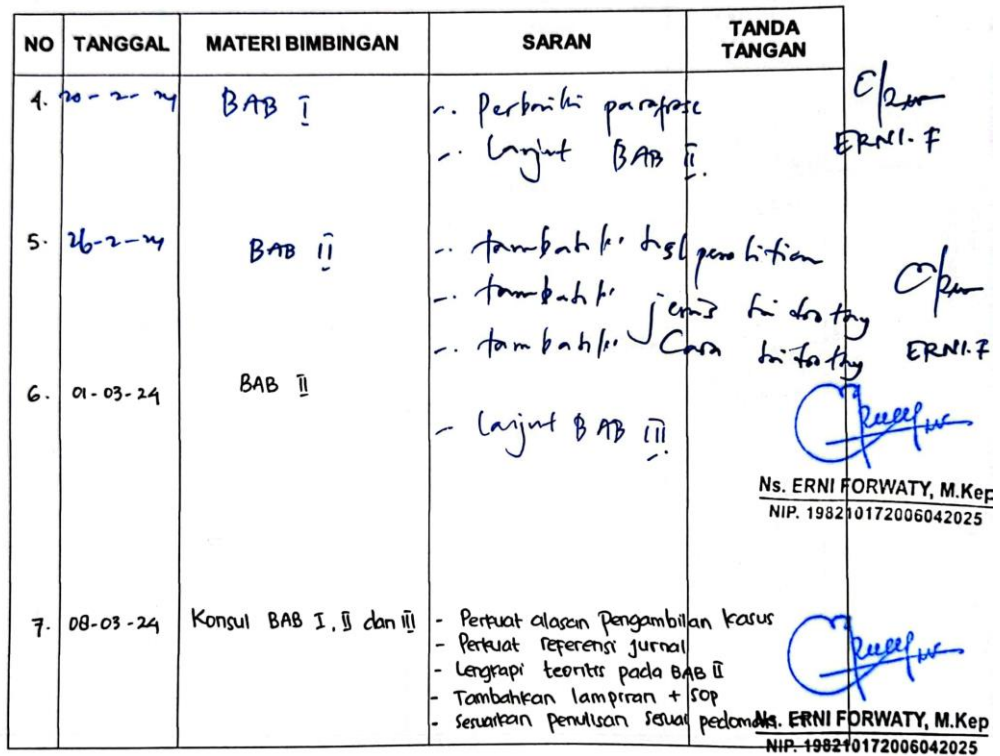 NO TANGGAL MATERI BIMBINGAN SARAN TANDA TANGAN
4. 20-2-24 BAB I -. Perbaiki parafrase
-. Lanjut BAB II.
ERNI. F
5. 26-2-24 BAB II -. tambahk.
-. tambahk. jenis
-. tambahk. Cara
ERNI. F
6. 01-03-24 BAB II
- Lanjut BAB III
Ns. ERNI FORWATY, M.Kep
NIP. 198210172006042025
7. 08-03-24 Konsul BAB I, II dan III - Perkuat alasan Pengambilan kasus
- Perkuat referensi jurnal
- Lengkapi teoritis pada BAB II
- Tambahkan lampiran + SOP
- Sesuaikan penulisan sesuai pedoman
Ns. ERNI FORWATY, M.Kep
NIP. 198210172006042025